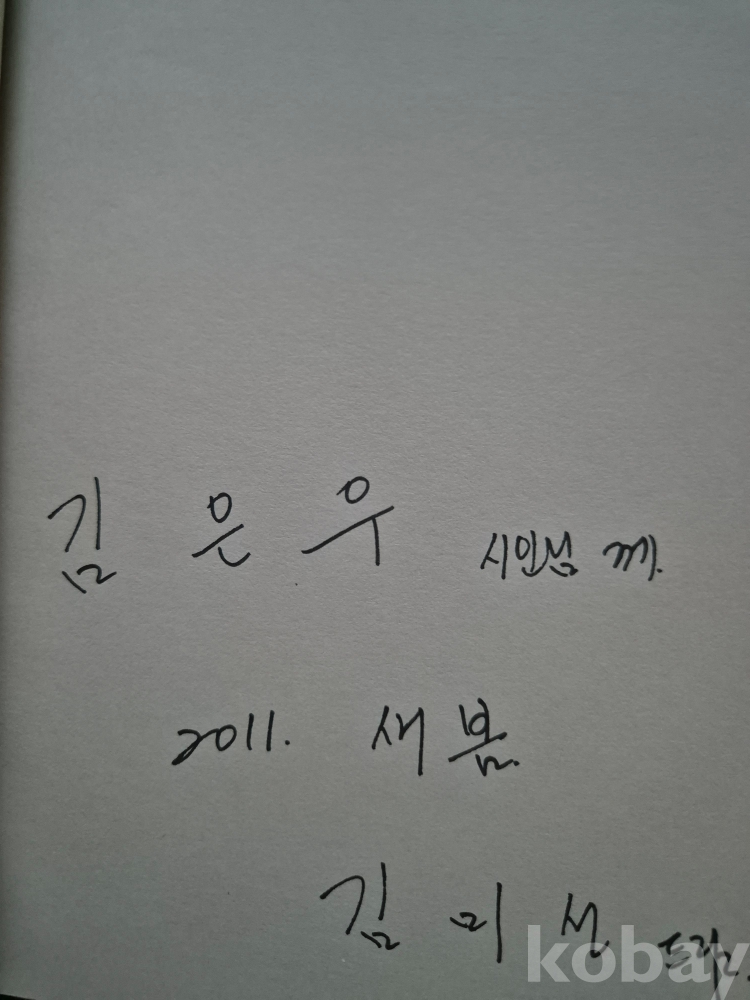 김은우 시인님께.
2011. 새봄.
김미성 드림.
kobay